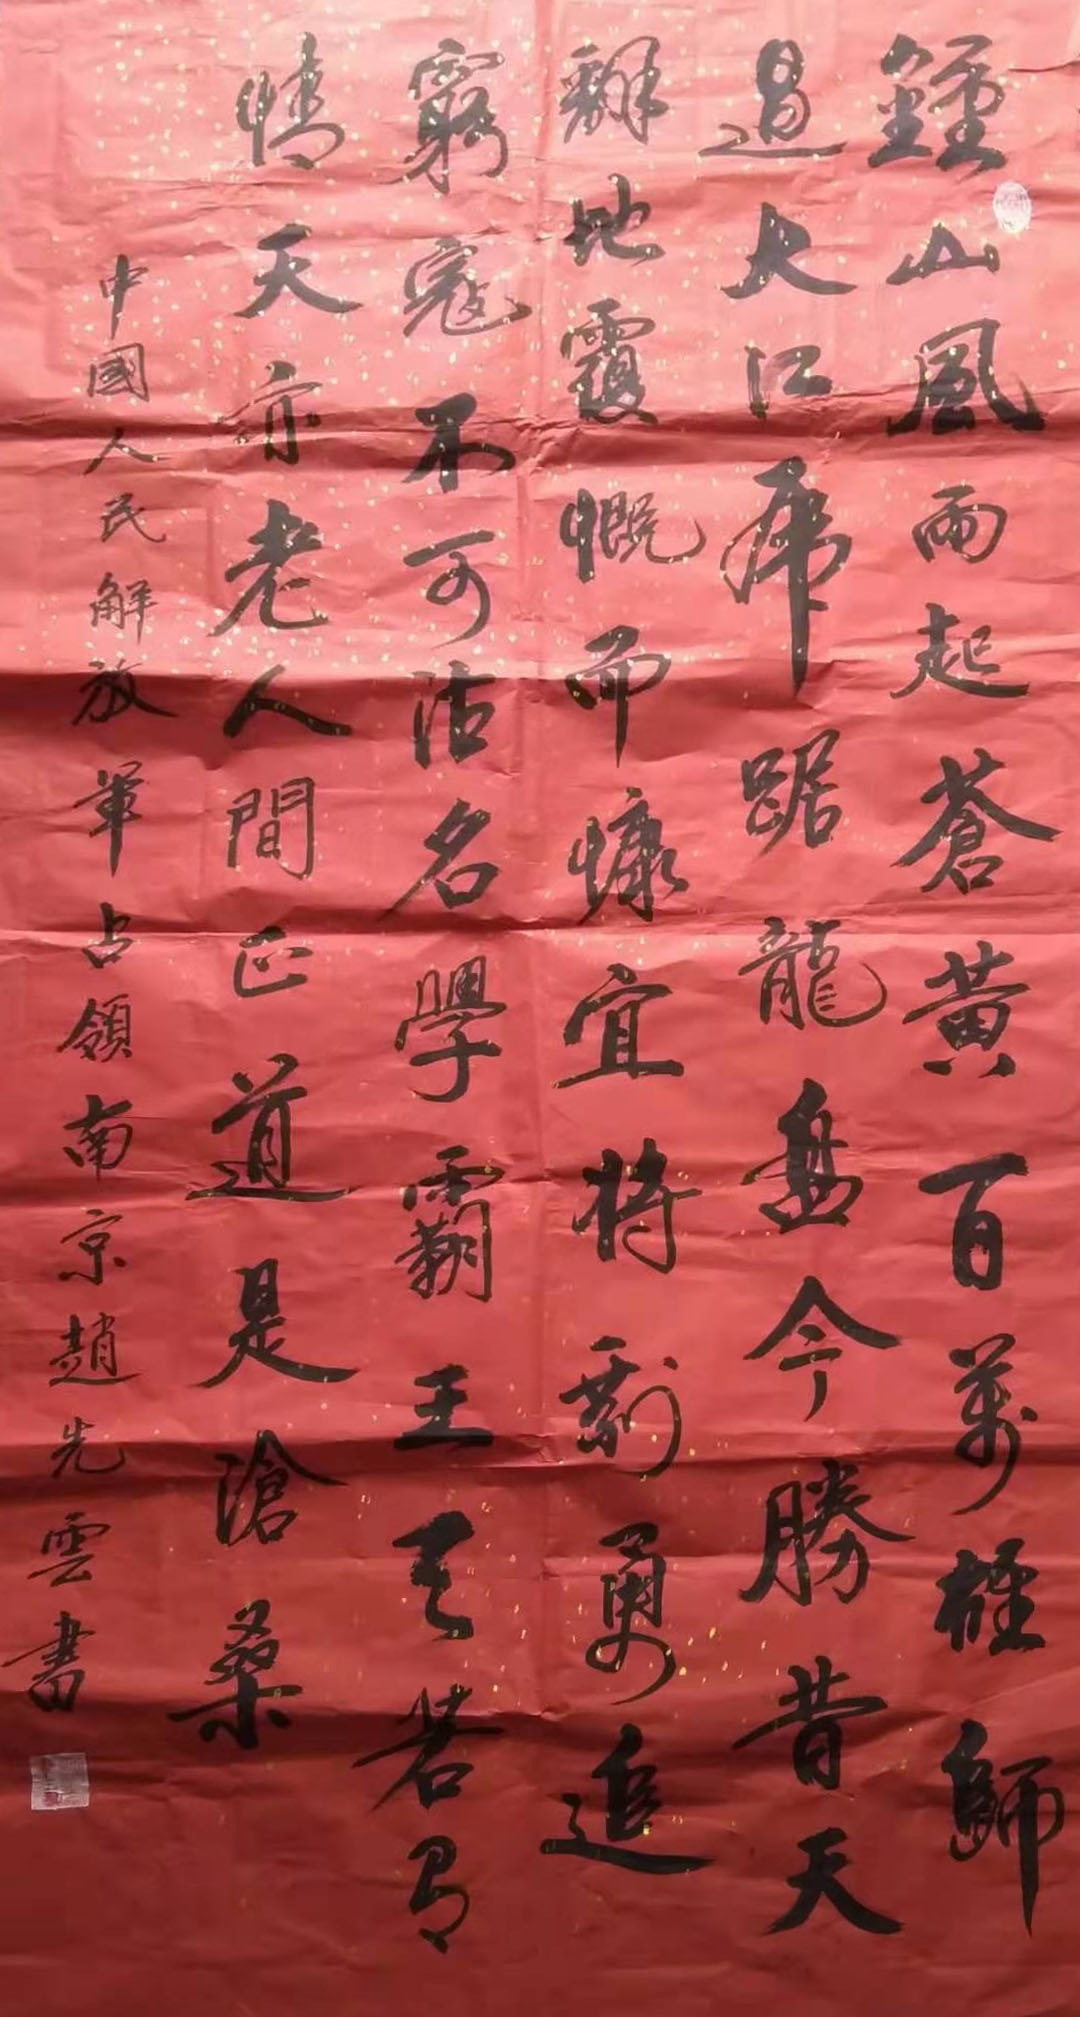 鍾山風雨起蒼黃百萬雄師
過大江虎踞龍盤今勝昔天
翻地覆慨而慷宜將剩勇追
窮寇不可沽名學霸王天若有
情天亦老人間正道是滄桑
中國人民解放軍占領南京趙先雲書